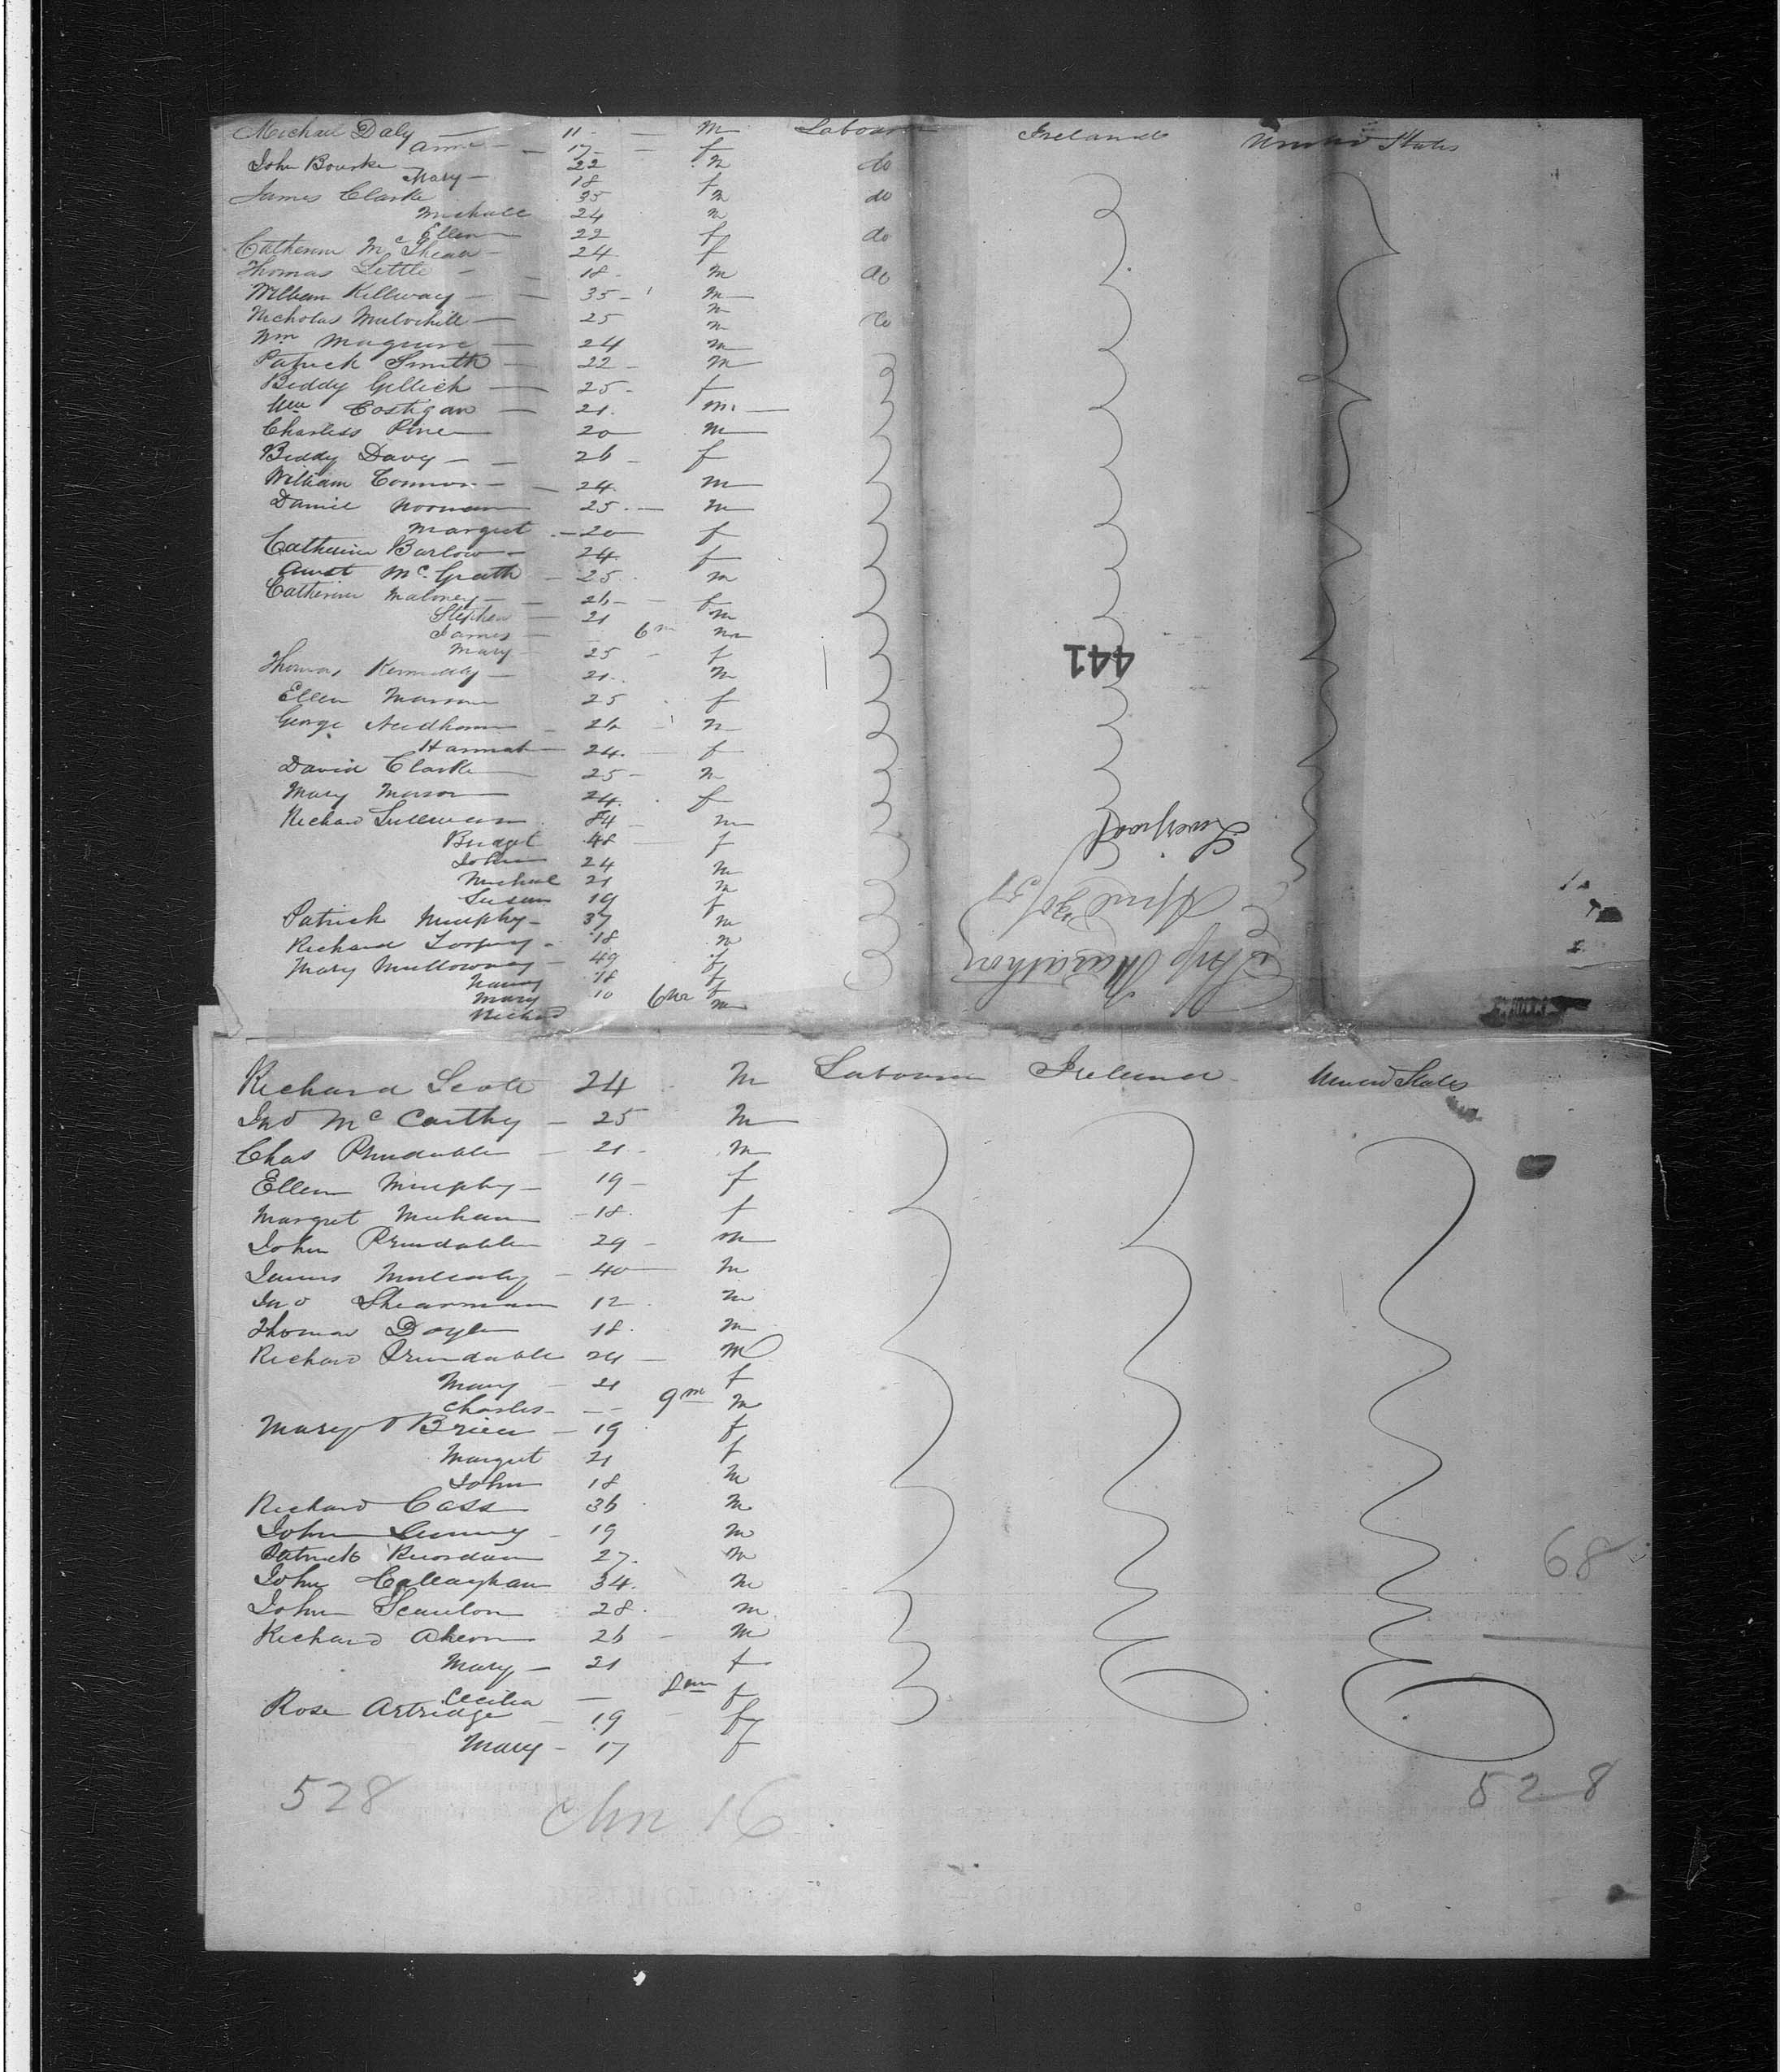 Michael Daly — 11 — m Labourer Ireland United States
Anne — 17 — f
John Bourke 22 m do
Mary — 18 f
James Clarke 35 m do
Michael 24 m
Ellen 22 f do
Catherine Mc 24 f
Thomas Little — 18 m do
William Killway — 35 — m
Nicholas Mulvihill — 25 m do
Wm Maguire — 24 m
Patrick Smith — 22 — m
Biddy Gillick — 25 — f
Wm Costigan — 21 m —
Charless 20 m
Biddy Davy — 26 — f
William Connor — 24 m
Daniel 25 — m
Margret — 20 f
Catherine Barlow — 24 f
Mc Grath — 25 m
Catherine Maloney — 26 — f
Stephen — 21 m
James — 6m m
Mary — 25 — f
Thomas Kennedy — 21 m
441
Ellen 25 f
George Needham — 26 — m
Hannah — 24 — f
David Clarke 25 — m
Mary Mason 24 f
Richard Sullivan 84 — m
Bridget 48 — f
Liverpool
John 24 m
Michael 21 m
Susan 19 f
April 30/51
Patrick Murphy — 37 m
Richard 18 m
Ship Marathon
Mary Mullowney — 49 f
Nancy 18 f
Mary 10 f
Richard 6m m
Richard Scott 24 m Labourer Ireland United States
Jno Mc Carthy — 25 m
Chas Prendable — 21 — m
Ellen Murphy — 19 — f
Margret Meehan — 18 f
John Prendable 29 — m
James Mulcahy — 40 — m
Jno Shearman 12 m
Thomas Doyle 18 m
Richard Prendable 24 — m
Mary — 21 f
Charles — 9m m
Mary O Brien — 19 f
Margret 21 f
John 18 m
Richard Cass 36 m
John 19 m
Patrick Riordan 27 m
68
John Callaghan 34 m
John Scanlon 28 m
Richard Ahern 26 — m
Mary — 21 f
Cecilia — 8m f
Rose Artridge — 19 — f
Mary — 17 f
528 Chn 16 528